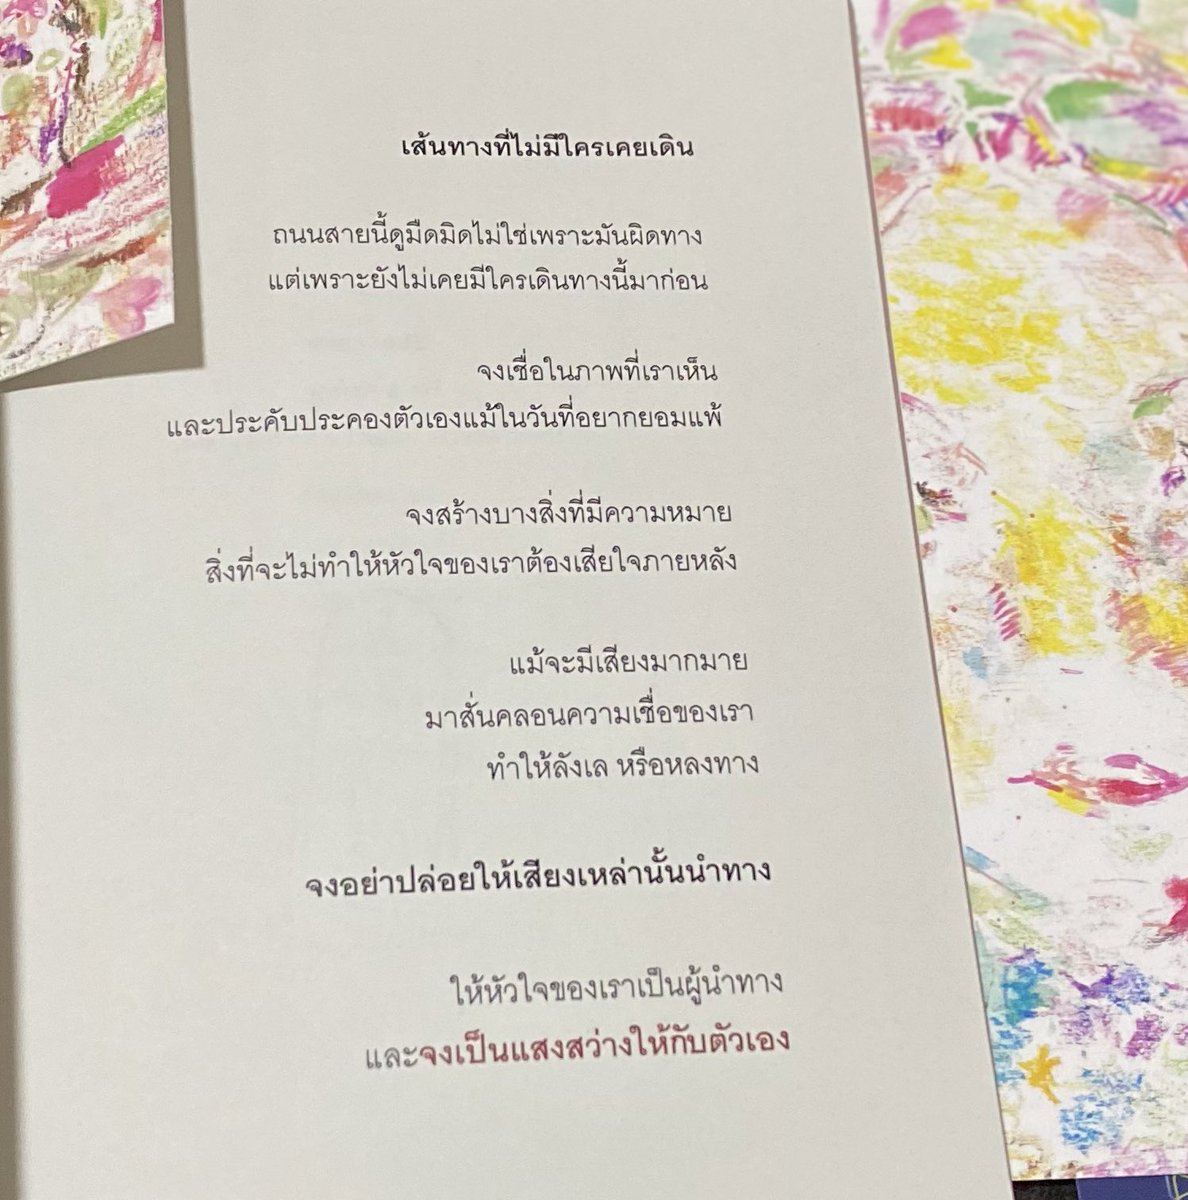 เส้นทางที่ไม่มีใครเคยเดิน
ถนนสายนี้ดูมืดมิดไม่ใช่เพราะมันผิดทาง
แต่เพราะยังไม่เคยมีใครเดินทางนี้มาก่อน
จงเชื่อในภาพที่เราเห็น
และประคับประคองตัวเองแม้ในวันที่อยากยอมแพ้
จงสร้างบางสิ่งที่มีความหมาย
สิ่งที่จะไม่ทำให้หัวใจของเราต้องเสียใจภายหลัง
แม้จะมีเสียงมากมาย
มาสั่นคลอนความเชื่อของเรา
ทำให้ลังเล หรือหลงทาง
จงอย่าปล่อยให้เสียงเหล่านั้นนำทาง
ให้หัวใจของเราเป็นผู้นำทาง
และจงเป็นแสงสว่างให้กับตัวเอง